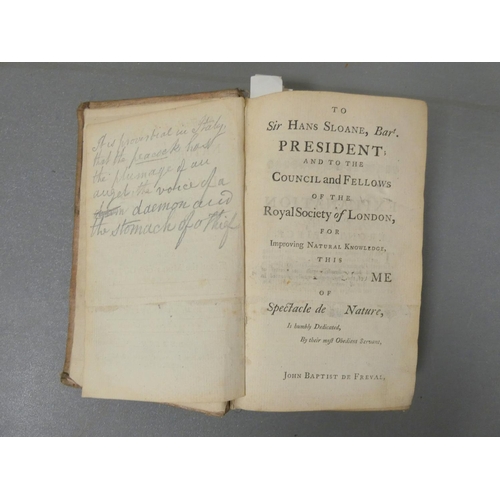 It is proverbial in Italy
that the peacock has
the plumage of an
angel, the voice of a
daemon and
the stomach of a thief
TO
Sir HANS SLOANE, Bart.
PRESIDENT;
AND TO THE
COUNCIL and FELLOWS
OF THE
Royal Society of LONDON,
FOR
Improving NATURAL KNOWLEDGE,
THIS
ME
OF
Spectacle de Nature,
Is humbly Dedicated,
By their most Obedient Servant,
JOHN BAPTIST DE FREVAL.